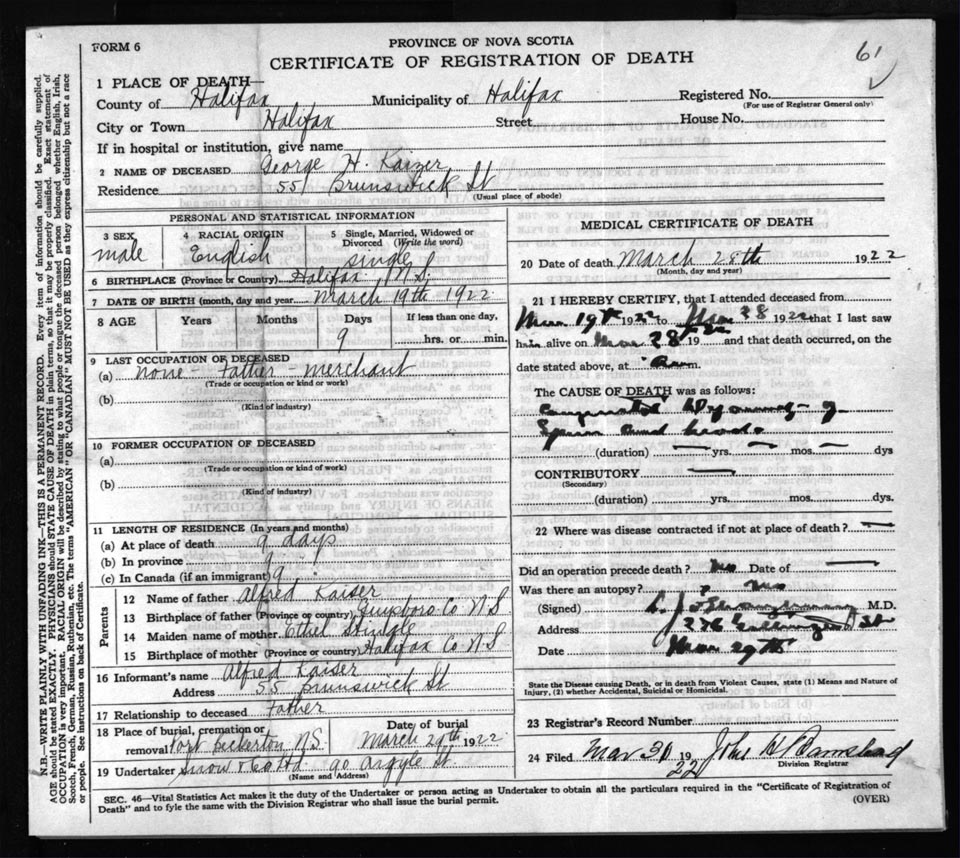 FORM 6
PROVINCE OF NOVA SCOTIA
CERTIFICATE OF REGISTRATION OF DEATH
61
1 PLACE OF DEATH—
County of Halifax Municipality of Halifax Registered No.
(For use of Registrar General only)
City or Town Halifax Street House No.
If in hospital or institution, give name
2 NAME OF DECEASED George H. Kaizer
Residence 55 Brunswick St
(Usual place of abode)
PERSONAL AND STATISTICAL INFORMATION
3 SEX male
4 RACIAL ORIGIN English
5 Single, Married, Widowed or Divorced (Write the word) single
6 BIRTHPLACE (Province or Country) Halifax N.S.
7 DATE OF BIRTH (month, day and year) March 19th 1922
8 AGE Years Months Days 9 If less than one day, hrs. or min.
9 LAST OCCUPATION OF DECEASED
(a) none - Father - merchant
(Trade or occupation or kind or work)
(b)
(Kind of industry)
10 FORMER OCCUPATION OF DECEASED
(a)
(Trade or occupation or kind or work)
(b)
(Kind of industry)
11 LENGTH OF RESIDENCE (In years and months)
(a) At place of death 9 days
(b) In province 9
(c) In Canada (if an immigrant) 9
Parents
12 Name of father Alfred Kaiser
13 Birthplace of father (Province or country) Guysboro Co N S
14 Maiden name of mother Ethel
15 Birthplace of mother (Province or country) Halifax Co N S
16 Informant's name Alfred Kaiser
Address 55 Brunswick St
17 Relationship to deceased Father
18 Place of burial, cremation or removal Port Beckerton N.S. Date of burial March 29th 1922
19 Undertaker Snow & Co Ltd 90 Argyle St
(Name and Address)
MEDICAL CERTIFICATE OF DEATH
20 Date of death March 28th 1922
(Month, day and year)
21 I HEREBY CERTIFY, that I attended deceased from
Mar 19th 1922 to Mar 28 1922 that I last saw
him alive on Mar 28 1922 and that death occurred, on the
date stated above, at m.
The CAUSE OF DEATH was as follows:
Congenital of
(duration) yrs. mos. dys
CONTRIBUTORY
(Secondary)
(duration) yrs. mos. dys.
22 Where was disease contracted if not at place of death?
Did an operation precede death? No Date of
Was there an autopsy? No
(Signed) M.D.
Address St
Date Mar 29th
State the Disease causing Death, or in death from Violent Causes, state (1) Means and Nature of
Injury, (2) whether Accidental, Suicidal or Homicidal.
23 Registrar's Record Number
24 Filed Mar 30 1922 John H Barnstead
Division Registrar
SEC. 46—Vital Statistics Act makes it the duty of the Undertaker or person acting as Undertaker to obtain all the particulars required in the "Certificate of Registration of
Death" and to fyle the same with the Division Registrar who shall issue the burial permit.
(OVER)
N.B.—WRITE PLAINLY WITH UNFADING INK—THIS IS A PERMANENT RECORD. Every item of information should be carefully supplied.
AGE should be stated EXACTLY. PHYSICIANS should STATE CAUSE OF DEATH in plain terms, so that it may be properly classified. Exact statement of
OCCUPATION is very important. RACIAL ORIGIN will be described by stating to what people or tongue the deceased person belonged whether English, Irish,
Scotch, French, German, Russian, Ruthenian, etc. The terms "AMERICAN" OR "CANADIAN" MUST NOT BE USED as they express citizenship but not a race
or people. See instructions on back of Certificate.